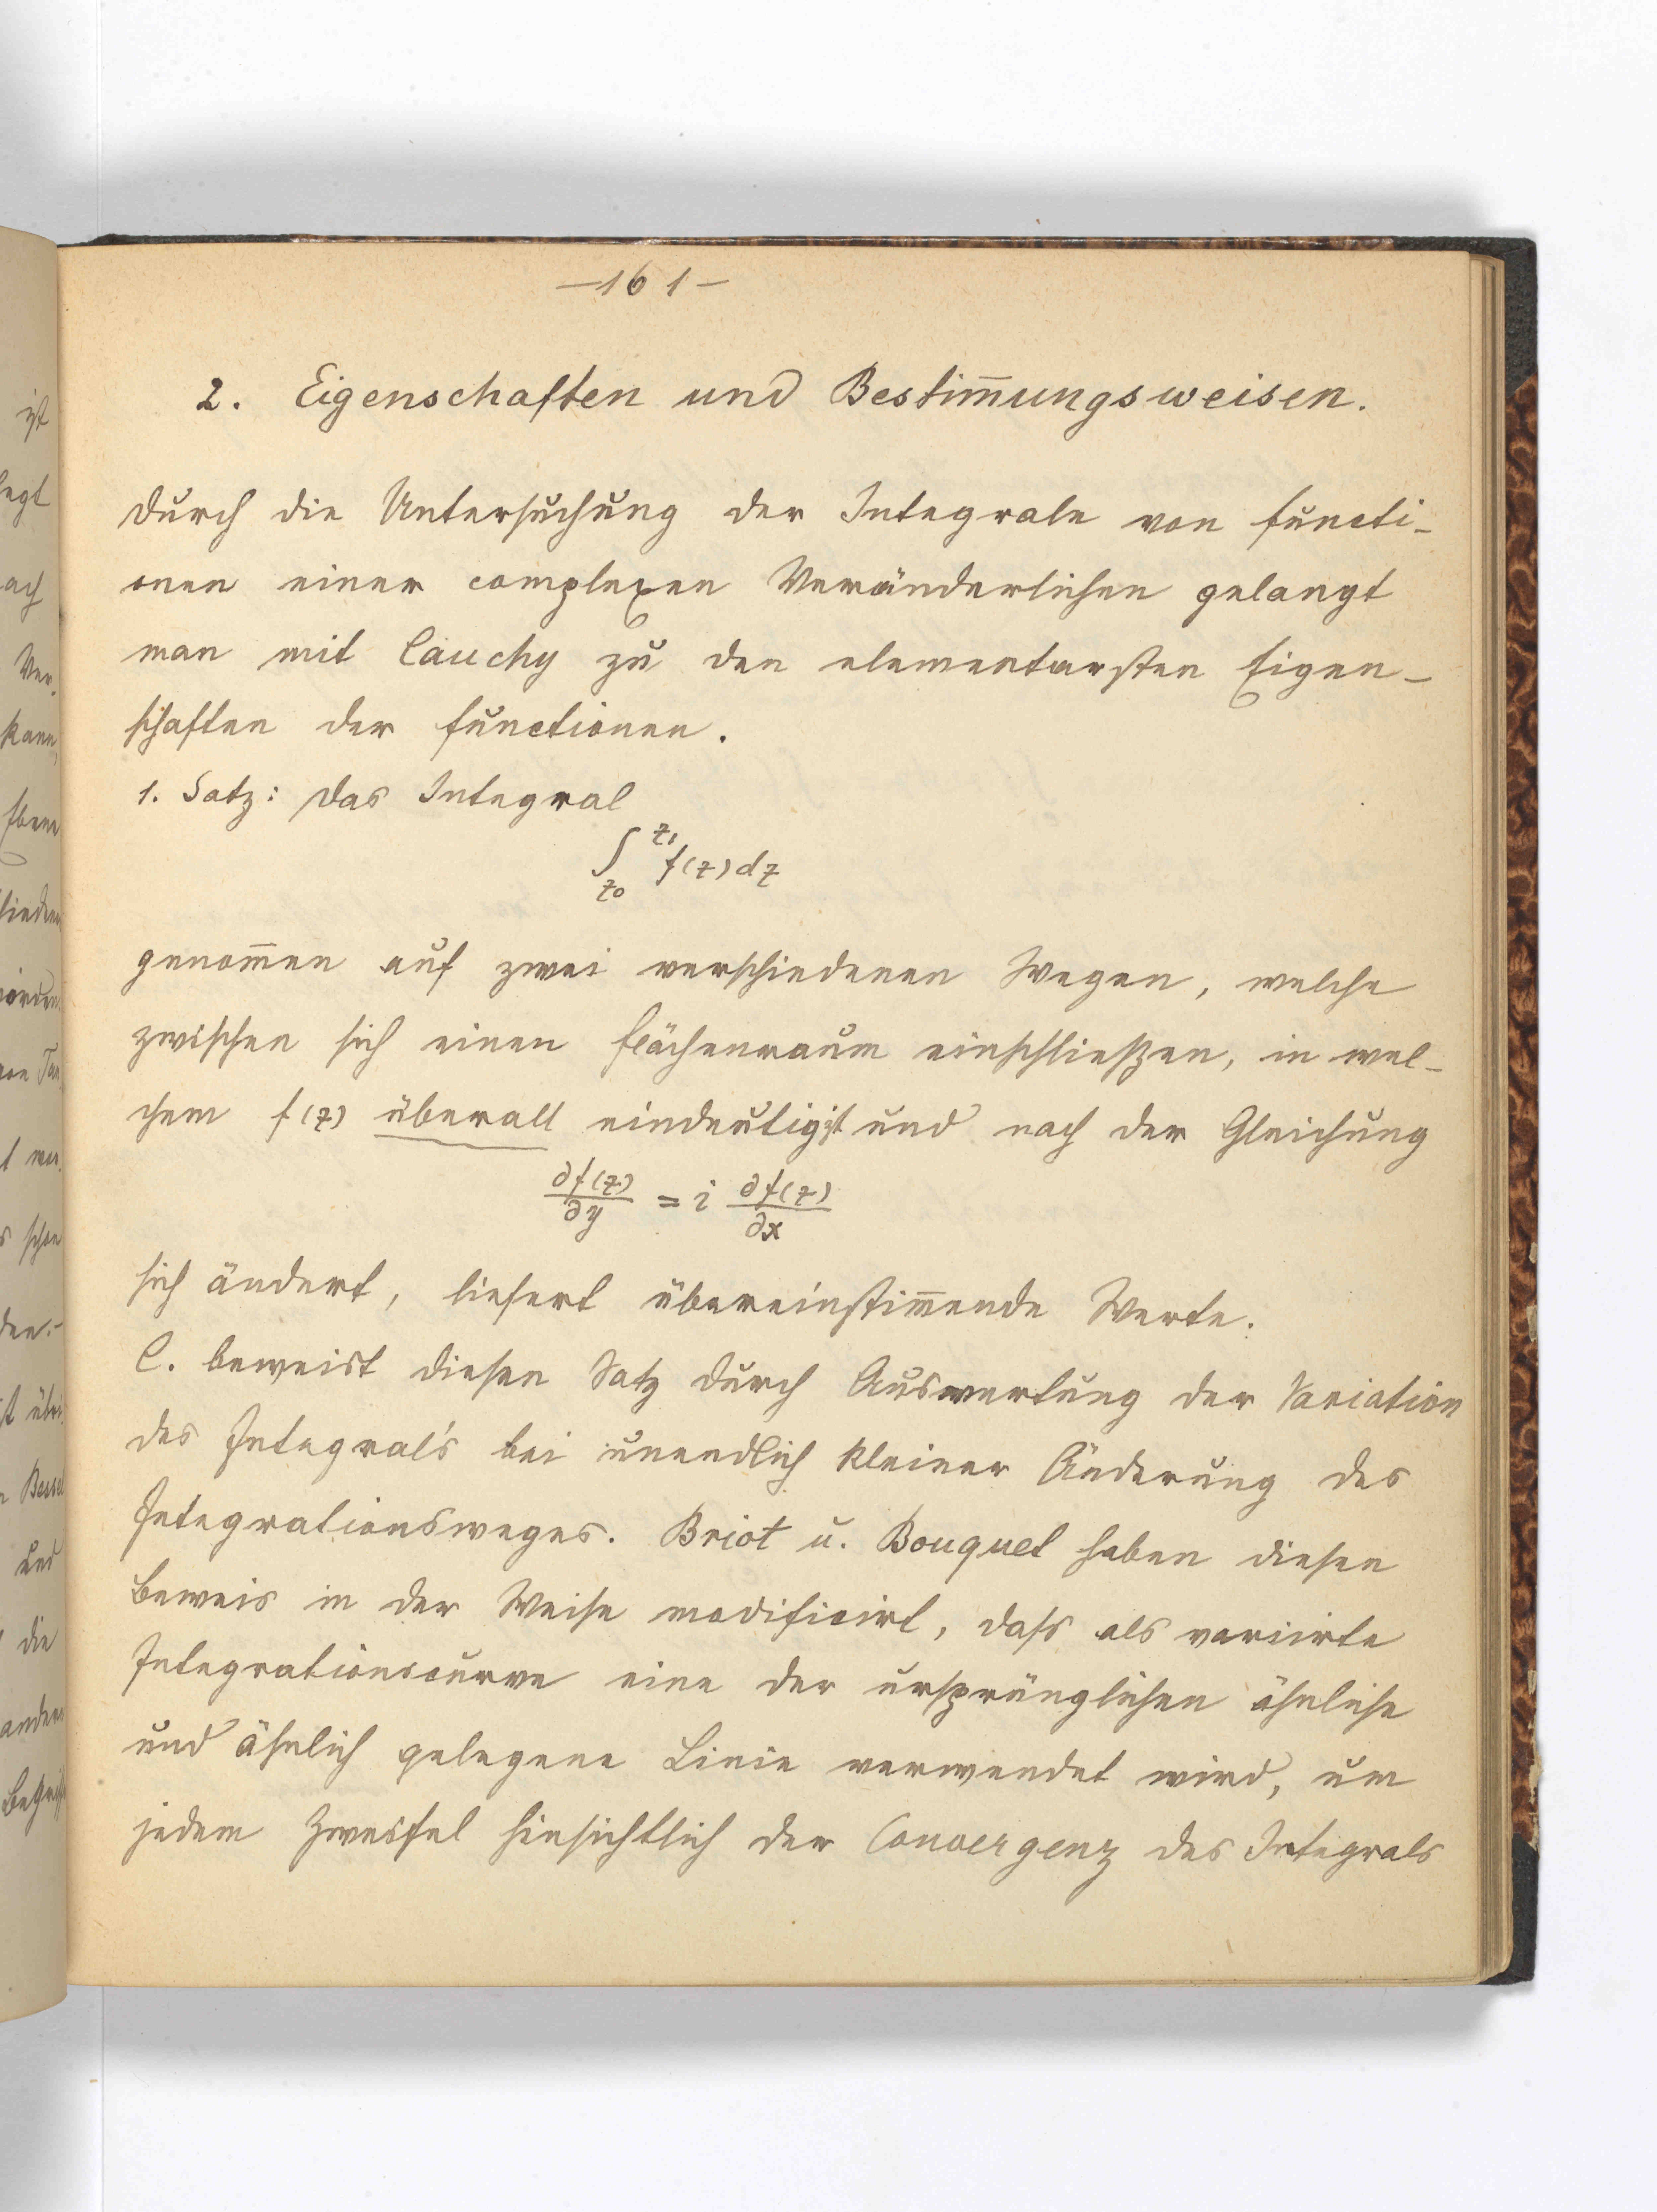 —161—
2. Eigenschaften und Bestim̄ungsweisen.
Durch die Untersuchung der Integrale von Functi-
onen einer complexen Veränderlichen gelangt
man mit Cauchy zu den elementarsten Eigen-
schaften der Functionen.
1. Satz: Das Integral
∫_{z_0}^{z_1} f(z) dz
genom̄en auf zwei verschiedenen Wegen, welche
zwischen sich einen Flächenraum einschließen, in wel-
chem f(z) überall eindeutig ist und nach der Gleichung
∂f(z)/∂y = i ∂f(z)/∂x
sich ändert, liefert übereinstim̄ende Werte.
C. beweist diesen Satz durch Auswertung der Variation
des Integrals bei unendlich kleiner Änderung des
Integrationsweges. Briot u. Bouquet haben diesen
Beweis in der Weise modificirt, dass als variirte
Integrationscurve eine der ursprünglichen ähnliche
und ähnlich gelegene Linie verwendet wird, um
jedem Zweifel hinsichtlich der Convergenz des Integrals
ist
legt
ach
Ver-
kann,
Ebene
von
schon
den.-
Bessel
und
die